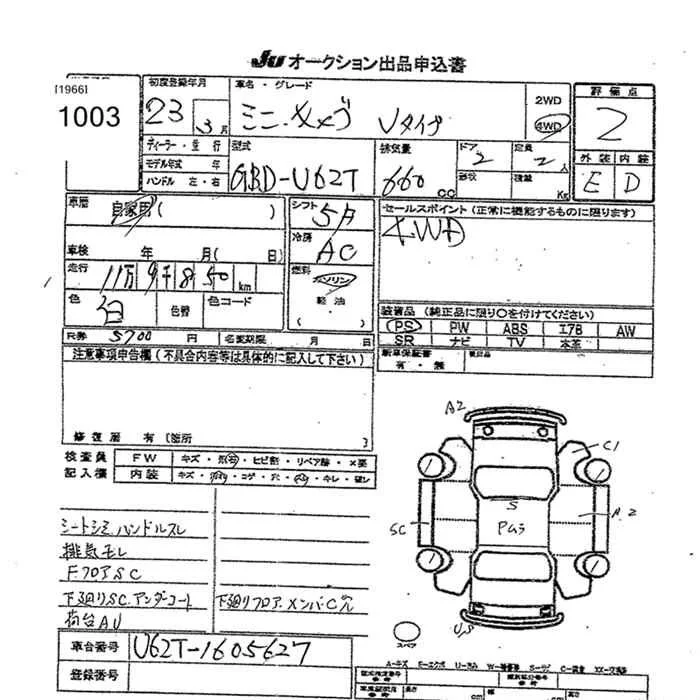 JU オークション出品申込書
[1966]
1003
初度登録年月
23 3月
車名・グレード
ミニ・キャブ Vタイプ
2WD
4WD
評価点
2
外装 内装
E D
ディーラー・並行
モデル年式 年
ハンドル 左・右
型式
GBD-U62T
排気量
660 CC
ドア
2
形状
定員
2人
積量
Kg
車歴
自家用( )
車検 年 月( 日)
走行
11万9千850 km
色
白
色替
色コード
シフト
5F
冷房
AC
燃料
ガソリン
軽油
( )
セールスポイント (正常に機能するものに限ります)
4WD
装備品 (純正品に限り〇を付けてください)
PS PW ABS エアB AW
SR ナビ TV 本革
新車保証書
有・無
R券 5700 円
名変期限 月 日
注意事項申告欄 (不具合内容等は具体的に記入して下さい)
修復歴 有 [箇所 ]
検査員
記入欄
FW キズ・飛石・ヒビ割・リペア跡・×要
内装
シートシミ ハンドルスレ
排気モレ
FフロアSC
下廻りSC.アンダーコート
荷台AU
下廻りフロア.メンバーC穴
A2
C1
S
Pムラ
A2
SC
US
スペア
車台番号
U62T-1605627
登録番号